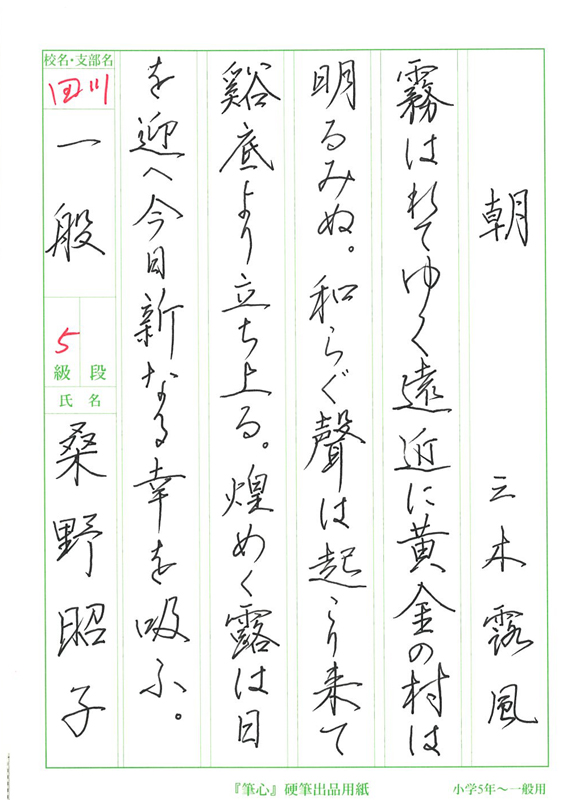 朝　三木露風
霧はれてゆく遠近に黄金の村は
明るみぬ。和らぐ聲は起こり来て
谿底より立ち上る。煌めく露は日
を迎へ今日新なる幸を吸ふ。
校名・支部名
田川
一般
5
級 段
氏名
桑野昭子
『筆心』硬筆出品用紙
小学5年〜一般用